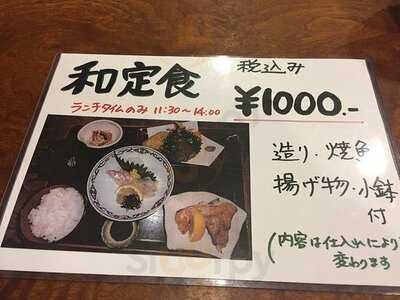 和定食
税込み
ランチタイムのみ 11:30～14:00
¥1000.-
造り・焼魚
揚げ物・小鉢
付
(内容は仕入れにより
変わります